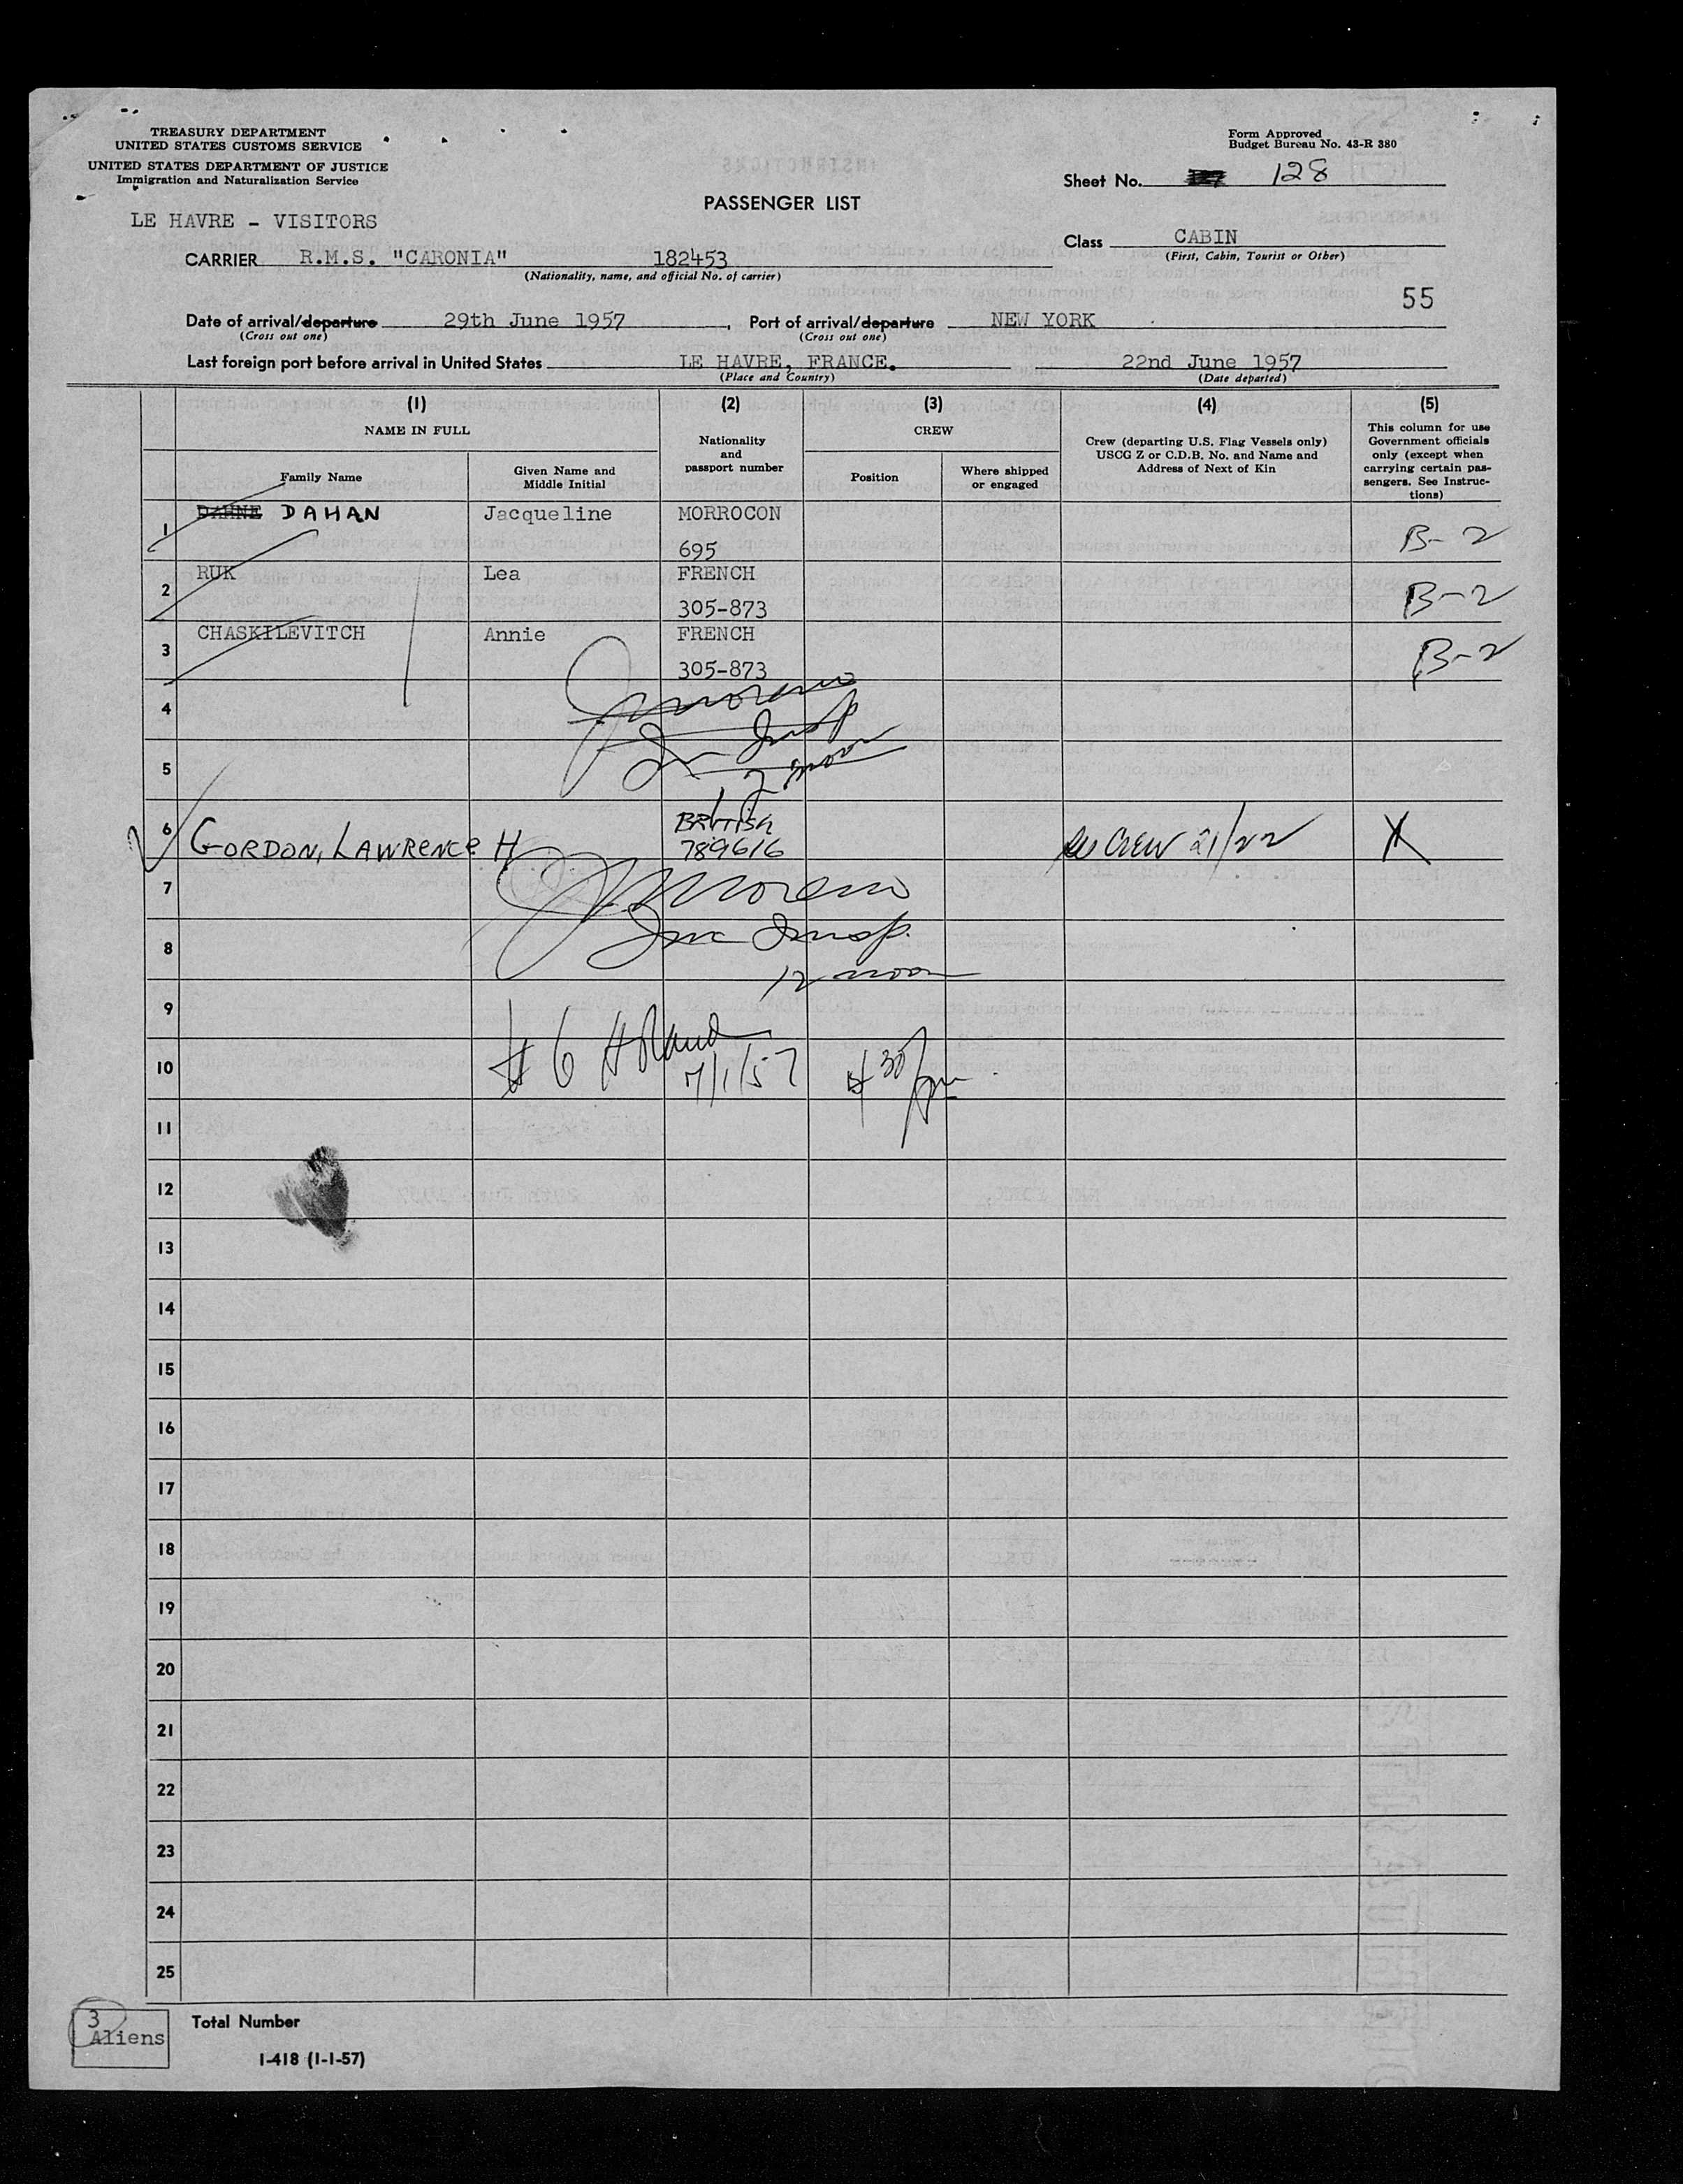 TREASURY DEPARTMENT
UNITED STATES CUSTOMS SERVICE
UNITED STATES DEPARTMENT OF JUSTICE
Immigration and Naturalization Service
Form Approved
Budget Bureau No. 43-R 380
Sheet No. 128
PASSENGER LIST
LE HAVRE - VISITORS
Class CABIN
(First, Cabin, Tourist or Other)
CARRIER R.M.S. "CARONIA" 182453
(Nationality, name, and official No. of carrier)
55
Date of arrival/departure 29th June 1957, Port of arrival/departure NEW YORK
(Cross out one) (Cross out one)
Last foreign port before arrival in United States LE HAVRE, FRANCE. 22nd June 1957
(Place and Country) (Date departed)
(1) (2) (3) (4) (5)
NAME IN FULL
Family Name
Given Name and
Middle Initial
Nationality
and
passport number
CREW
Position
Where shipped
or engaged
Crew (departing U.S. Flag Vessels only)
USCG Z or C.D.B. No. and Name and
Address of Next of Kin
This column for use
Government officials
only (except when
carrying certain pas-
sengers. See Instruc-
tions)
1 DAHNE DAHAN Jacqueline MORROCON B-2
695
2 RUK Lea FRENCH B-2
305-873
3 CHASKILEVITCH Annie FRENCH B-2
305-873
4 Moreno
Insp
5
12 noon
6 GORDON, LAWRENCE H BRITISH 789616 CREW 21/22 X
7 Moreno
8 Insp.
12 noon
9
# 6
10 7/1/57 4 30/pm
11
12
13
14
15
16
17
18
19
20
21
22
23
24
25
3
Aliens
Total Number
I-418 (1-1-57)